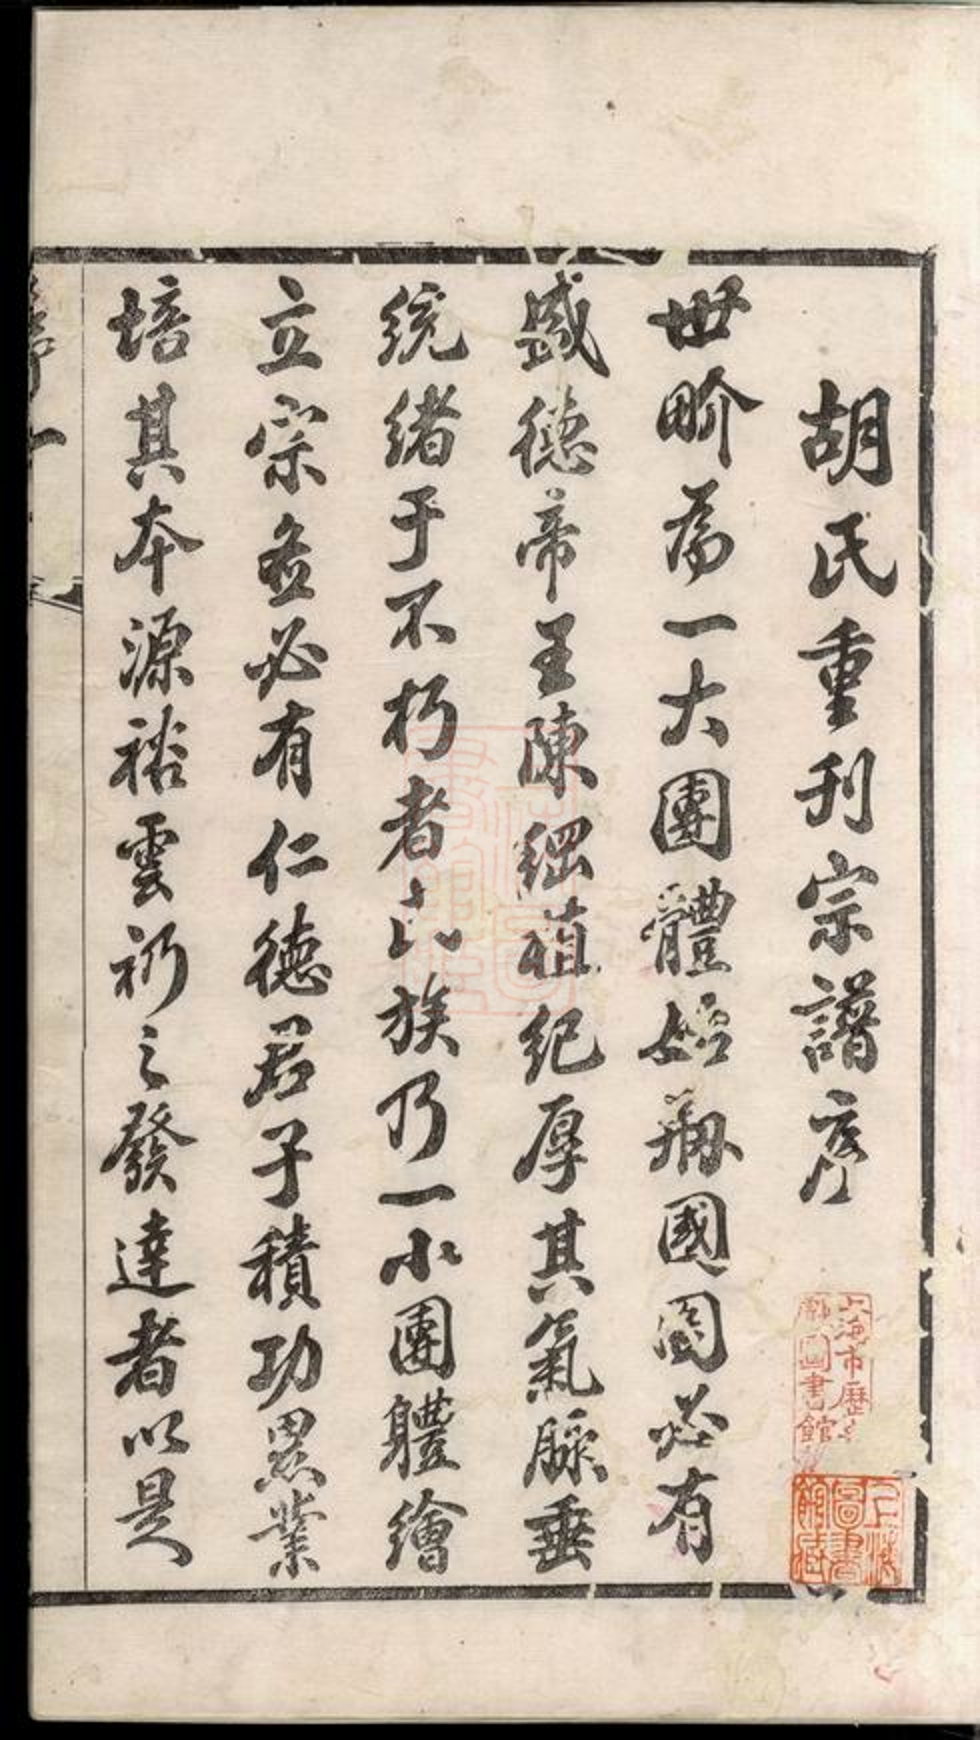 胡氏重刊宗譜序
世界為一大團體始剏國圖必有
盛德帝王陳綱植紀厚其氣脈垂
統緒于不朽者亡族乃一小團體繪
立宗者必有仁德君子積功累業
培其本源裕雲礽之發達者以是
上海市歷史
圖書館
上海
圖書
館藏